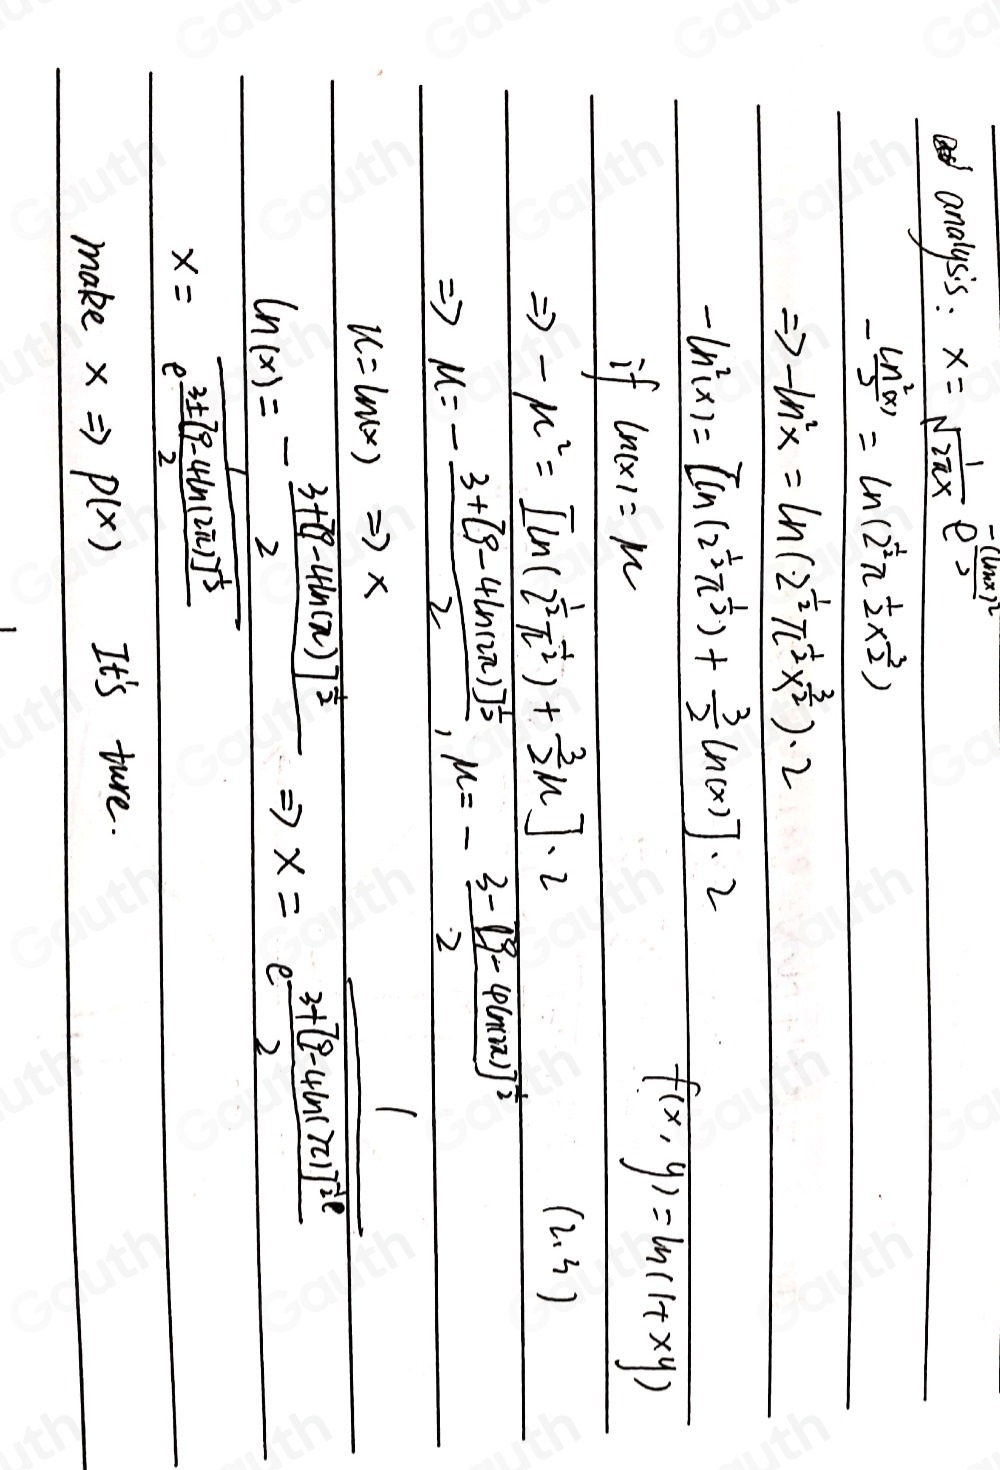 analysis: x = \frac{1}{\sqrt{2πx}} e^{\frac{-(lnx)^2}{2}}
-\frac{ln^2(x)}{2} = ln(2^{\frac{1}{2}} π^{\frac{1}{2}} x^{\frac{3}{2}})
=> -ln^2x = ln(2^{\frac{1}{2}} π^{\frac{1}{2}} x^{\frac{3}{2}})·2
-ln^2(x) = [ln(2^{\frac{1}{2}} π^{\frac{1}{2}}) + \frac{3}{2} ln(x)]·2
f(x, y) = ln(1+xy)
if ln(x) = u
=> -u^2 = [ln(2^{\frac{1}{2}} π^{\frac{1}{2}}) + \frac{3}{2}u]·2
(2,3)
=> u = -\frac{3+[9-4ln(2π)]^{\frac{1}{2}}}{2}, u = -\frac{3-[9-4ln(2π)]^{\frac{1}{2}}}{2}
u = ln(x) => x
ln(x) = -\frac{3+[9-4ln(2π)]^{\frac{1}{2}}}{2} => x = \frac{1}{e^{\frac{3+[9-4ln(2π)]^{\frac{1}{2}}}{2}}}
x = \frac{1}{e^{\frac{3±[9-4ln(2π)]^{\frac{1}{2}}}{2}}}
make x => p(x) It's ture.
Gauth